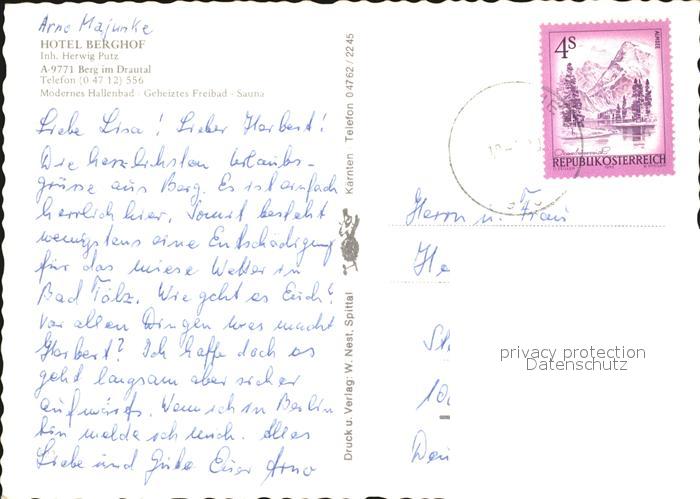 Arno Majunke
HOTEL BERGHOF
Inh. Herwig Putz
A-9771 Berg im Drautal
Telefon (0 47 12) 556
Modernes Hallenbad · Geheiztes Freibad · Sauna
Liebe Lisa! Lieber Herbert!
Die herzlichsten Urlaubs-
grüsse aus Berg. Es ist einfach
herrlich hier. Somit besteht
wenigstens eine Entschädigung
für das miese Wetter in
Bad Tölz. Wie geht es Euch?
Vor allen Dingen was macht
Herbert? Ich hoffe doch es
geht langsam aber sicher
aufwärts. Wenn ich in Berlin
bin melde ich mich. Alles
Liebe und Gute Euer Arno
Druck u. Verlag: W. Nest, Spittal Kärnten Telefon 04762/2245
4s
ALMSEE
REPUBLIK ÖSTERREICH
Herrn u. Frau
He
St
10
privacy protection
Datenschutz